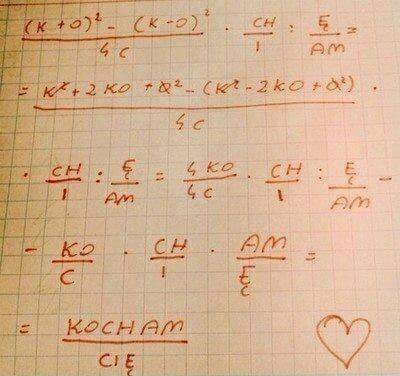 (K+O)² - (K-O)² / 4C · CH/1 : Ę/AM =
= K²+2KO+O²-(K²-2KO+O²) / 4C ·
· CH/1 : Ę/AM = 4KO/4C · CH/1 : Ę/AM -
- KO/C · CH/1 · AM/Ę =
= KOCHAM / CIĘ ♡